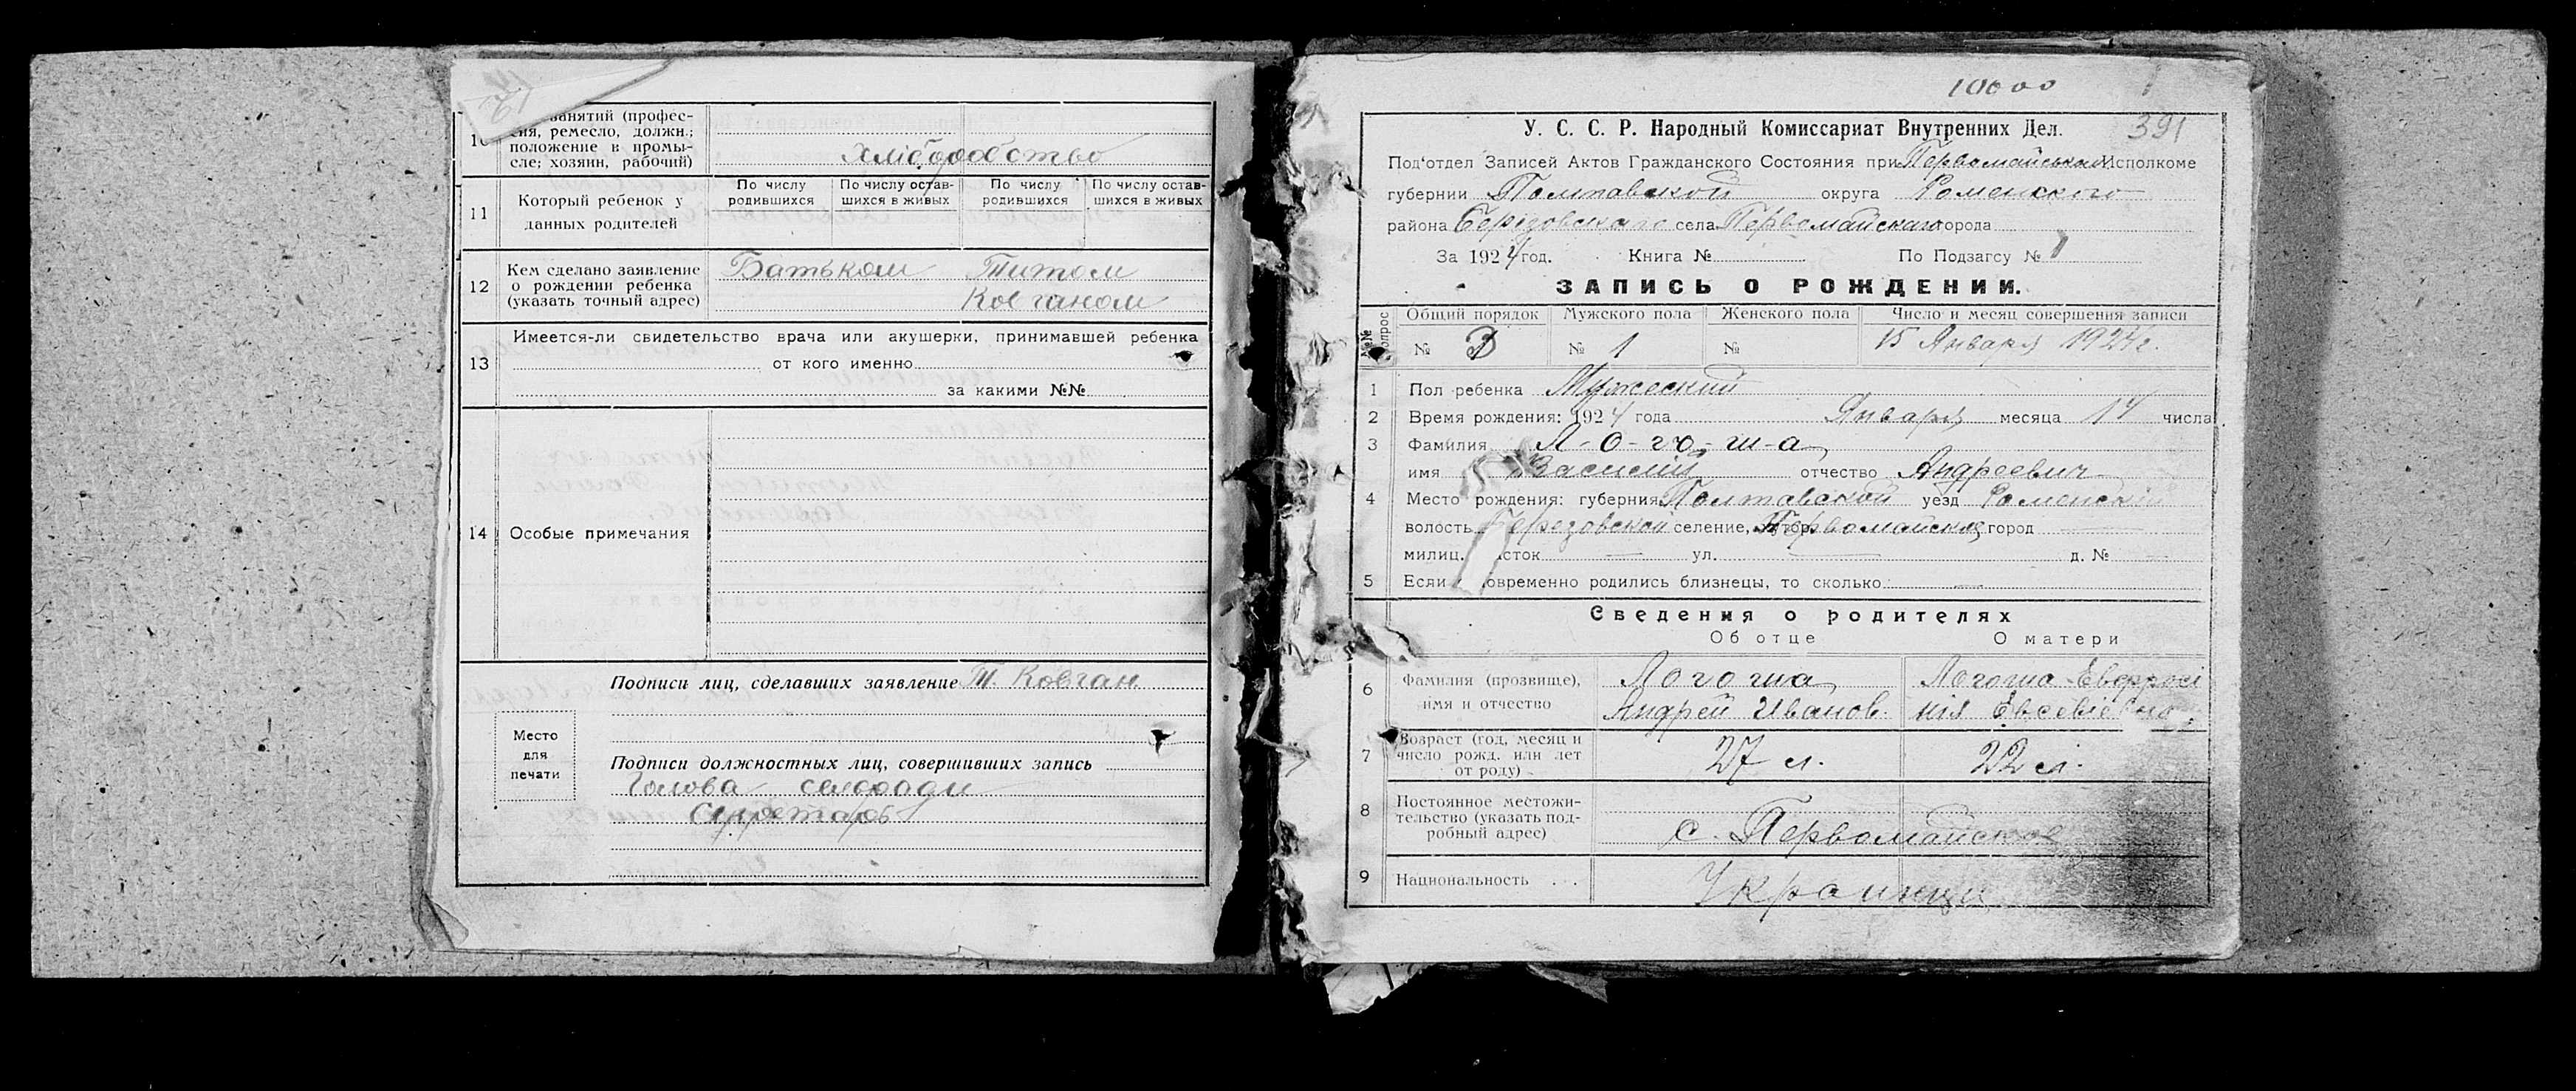 занятий (профес-
сия, ремесло, должн.;
положение в промы-
сле; хозяин, рабочий)
Хліборобство
11 Который ребенок у данных родителей
По числу родившихся По числу остав-шихся в живых По числу родившихся По числу остав-шихся в живых
12 Кем сделано заявление Батьком Титом
о рождении ребенка
(указать точный адрес) Ковганом
Имеется-ли свидетельство врача или акушерки, принимавшей ребенка
13 от кого именно
за какими №№
14 Особые примечания
Подписи лиц, сделавших заявление Т. Ковган
Место для печати
Подписи должностных лиц, совершивших запись
Голова сельради
Секретарь
10000
391
У. С. С. Р. Народный Комиссариат Внутренних Дел.
Под'отдел Записей Актов Гражданского Состояния при Первомайськом Исполкоме
губернии Полтавской округа Роменского
района Берёзовскаго села Первомайскаго города
За 1924 год. Книга № По Подзагсу № 1
ЗАПИСЬ О РОЖДЕНИИ.
№№ вопрос Общий порядок Мужского пола Женского пола Число и месяц совершения записи
№ № 1 № 15 Января 1924 г.
1 Пол ребенка Мужеский
2 Время рождения: 1924 года Января месяца 14 числа
3 Фамилия Л-о-го-ш-а
имя Василий отчество Андреевич
4 Место рождения: губерния Полтавской уезд Роменский
волость Березовской селение, хутор Первомайское город
милиц. сток ул. д. №
5 Если овременно родились близнецы, то сколько:
Сведения о родителях
Об отце О матери
6 Фамилия (прозвище), Логоша Логоша Евфросі
имя и отчество Андрей Иванов. нія Евсевіевна
7 Возраст (год, месяц и число рожд. или лет от роду) 27 л. 22 л.
8 Постоянное местожи-тельство (указать под-робный адрес) с. Первомайское
9 Национальность Украинци